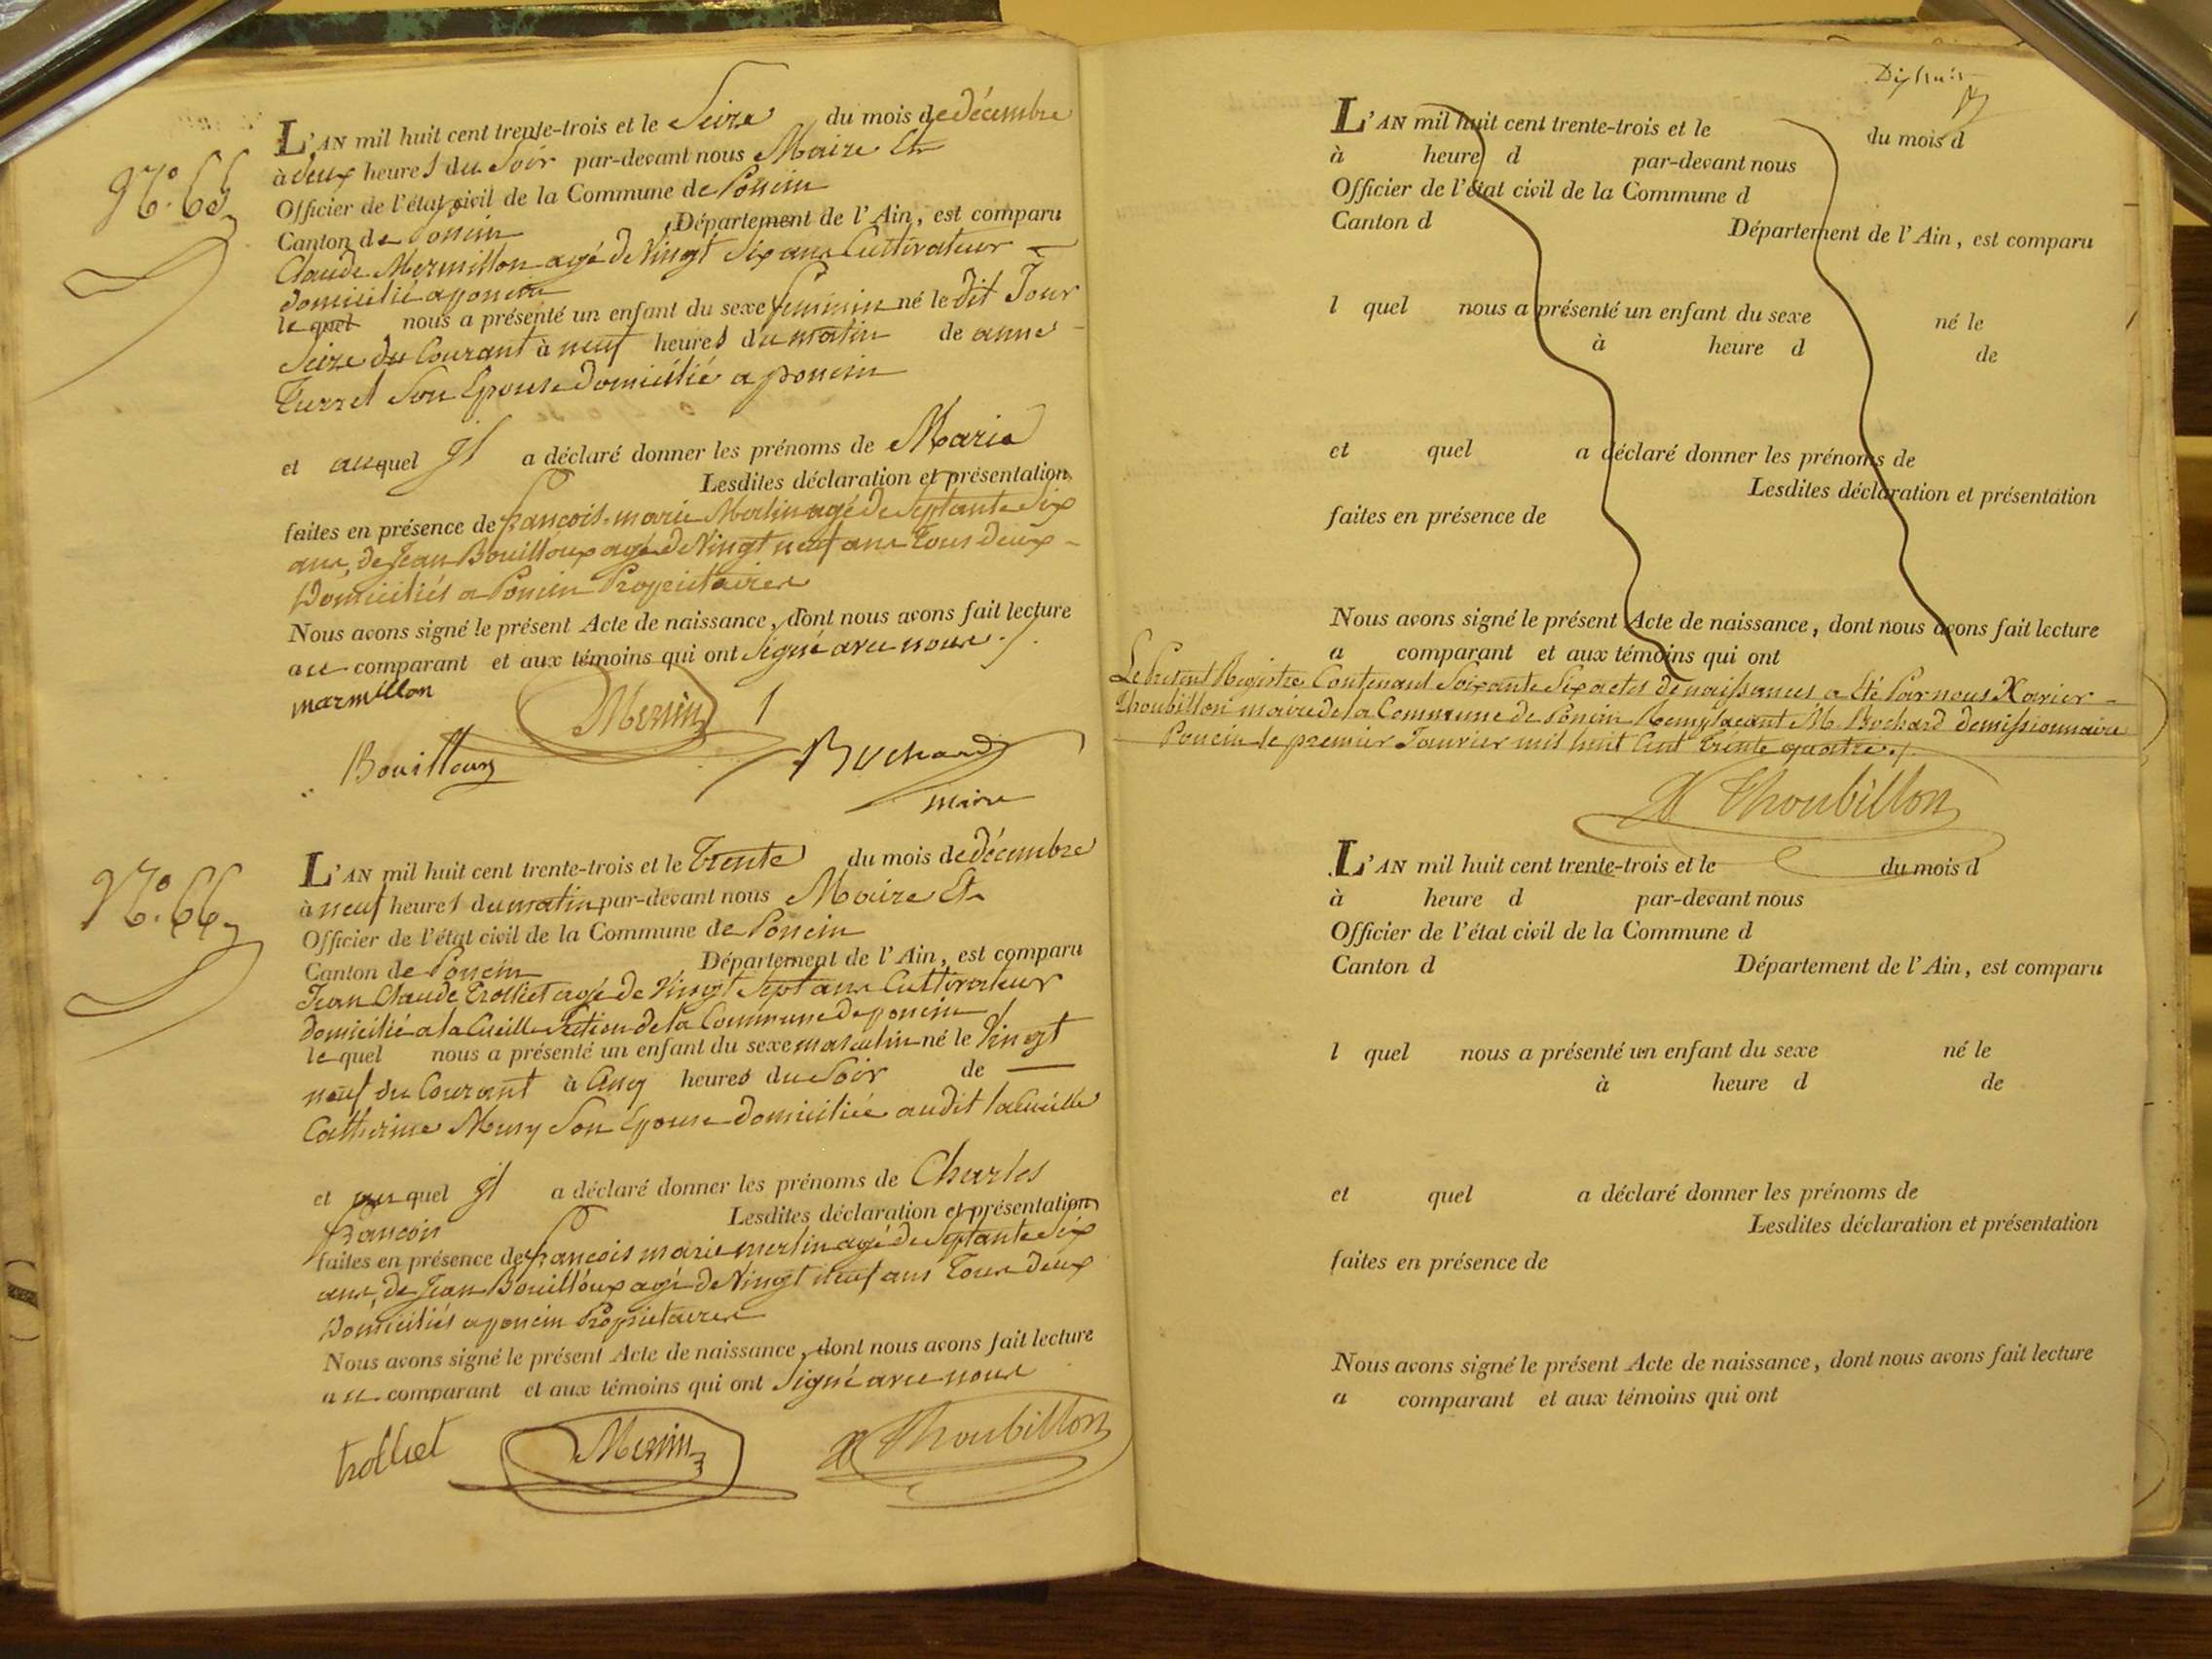 N.° 65
L'AN mil huit cent trente-trois et le Seize du mois de décembre
à deux heures du Soir par-devant nous Maire Et
Officier de l'état civil de la Commune de Poncin
Canton de Poncin Département de l'Ain, est comparu
Claude Mermillon agé de Vingt Six ans Cultivateur
domicilié a poncin
lequel nous a présenté un enfant du sexe feminin né le dit Jour
Seize du Courant à neuf heures du matin de anne
Turrel Son Epouse domicilié a poncin
et auquel il a déclaré donner les prénoms de Marie
Lesdites déclaration et présentation
faites en présence de françois-marie Merlin agé de Septante Six
ans, de Jean Bouilloux agé de Vingt neuf ans Tous deux
Domiciliés a Poncin Propriétaires
Nous avons signé le présent Acte de naissance, dont nous avons fait lecture
au comparant et aux témoins qui ont Signé avec nous ./.
marmillon
Merlin
Bouilloux
Bochard
maire
N.° 66
L'AN mil huit cent trente-trois et le Trente du mois de décembre
à neuf heures du matin par-devant nous Maire Et
Officier de l'état civil de la Commune de Poncin
Canton de Poncin Département de l'Ain, est comparu
Jean Claude Trolliet agé de Vingt Sept ans Cultivateur
domicilié a la Cueille Section de la Commune de poncin
lequel nous a présenté un enfant du sexe masculin né le Vingt
neuf du Courant à Cinq heures du Soir de
Catherine Mury Son Epouse domiciliée audit la Cueille
et auquel il a déclaré donner les prénoms de Charles
françois Lesdites déclaration et présentation
faites en présence de françois marie merlin agé de Septante Six
ans, de Jean Bouilloux agé de Vingt neuf ans Tous deux
Domiciliés a poncin Propriétaires
Nous avons signé le présent Acte de naissance, dont nous avons fait lecture
au comparant et aux témoins qui ont Signé avec nous
trolliet
Merlin
X Thoubillon
Dix huit
L'AN mil huit cent trente-trois et le du mois d
à heure d par-devant nous
Officier de l'état civil de la Commune d
Canton d Département de l'Ain, est comparu
l quel nous a présenté un enfant du sexe né le
à heure d de
et quel a déclaré donner les prénoms de
Lesdites déclaration et présentation
faites en présence de
Nous avons signé le présent Acte de naissance, dont nous avons fait lecture
a comparant et aux témoins qui ont
Le Présent Registre Contenant Soixante Six actes de naissances a été Par nous Xavier
Thoubillon maire de la Commune de Poncin Remplaçant M. Bochard demissionnaire
Poncin le premier Janvier mil huit Cent Trente quatre ./.
X Thoubillon
L'AN mil huit cent trente-trois et le du mois d
à heure d par-devant nous
Officier de l'état civil de la Commune d
Canton d Département de l'Ain, est comparu
l quel nous a présenté un enfant du sexe né le
à heure d de
et quel a déclaré donner les prénoms de
Lesdites déclaration et présentation
faites en présence de
Nous avons signé le présent Acte de naissance, dont nous avons fait lecture
a comparant et aux témoins qui ont